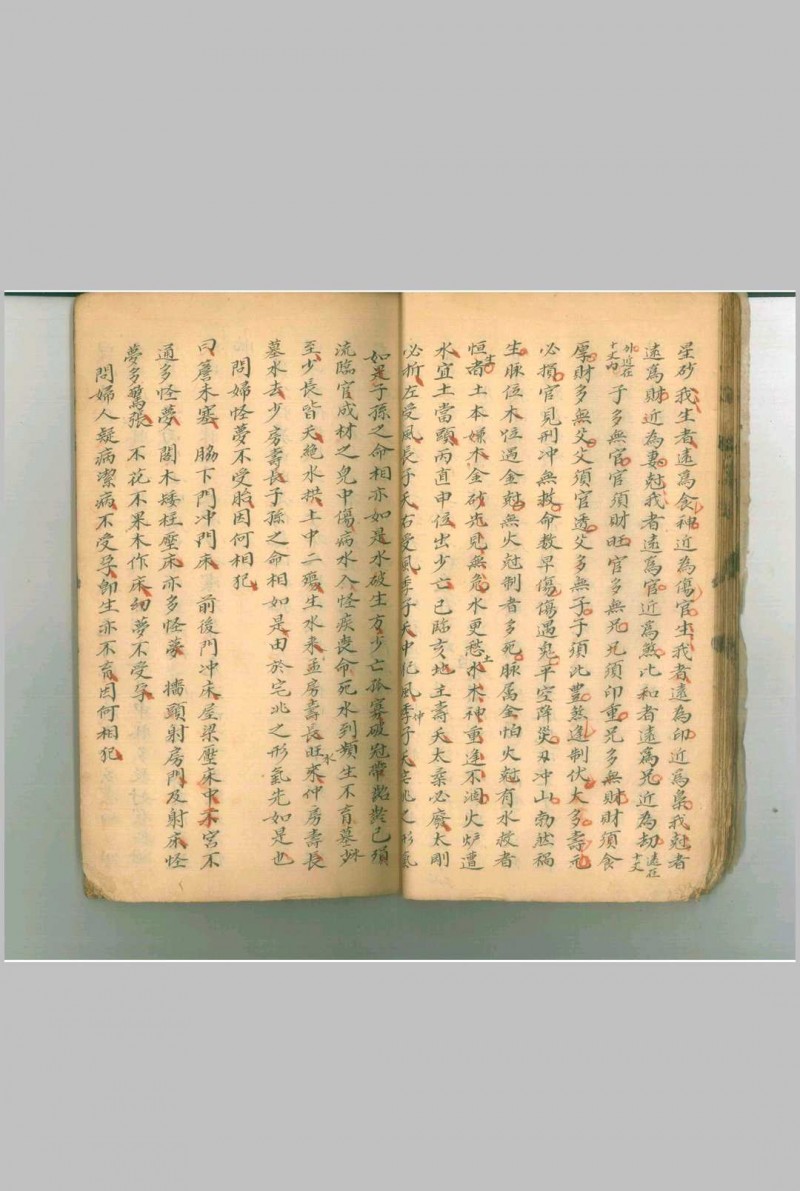 星砂我生者遠爲食神近為傷官生我者遠為印近爲梟我尅者
遠爲財近為妻尅我者遠爲官近爲煞比和者遠爲兄近為劫遠在十丈
外近在十丈內 子多無官官須財旺官多無兄兄須印重兄多無財財須食
厚財多無父父須官透父多無子子須比豊煞逢制伏太多壽元
必損官見刑冲無救命教早傷傷遇兕平空降災刃冲山勃然禍
生脉位木位過金尅無火尅制者多死脉属金怕火尅有水救者
恒生者土本嫌木金砂先見無危水更愁土水木神重逢不涸火炉遭
水宜土當頭丙直申位出少亡己臨亥地主壽夭太柔必廢太剛
必折左受風長子夭右受風季子夭中犯風仲子夭宅兆之形氣
如是子孫之命相亦如是水破生方少亡孤寡破冠帶齠齡已殞
流臨官成材之兒中傷病水入怪疾喪命死水到頻生不育墓水
至少長皆夭絶水拱上中二殤生水来孟房壽長旺水來仲房壽長
墓水去少房壽長子孫之命相如是由於宅兆之形氣先如是也
問婦怪夢不受胎因何相犯
曰簷木塞 脇下門冲門床 前後門冲床屋梁壓床中木宮不
通多怪夢 閣木矮枉壓床亦多怪夢 墻頭射房門及射床怪
夢多驚張 不花不果木作床幼夢不受孕
問婦人疑病潔病不受孕卽生亦不育因何相犯